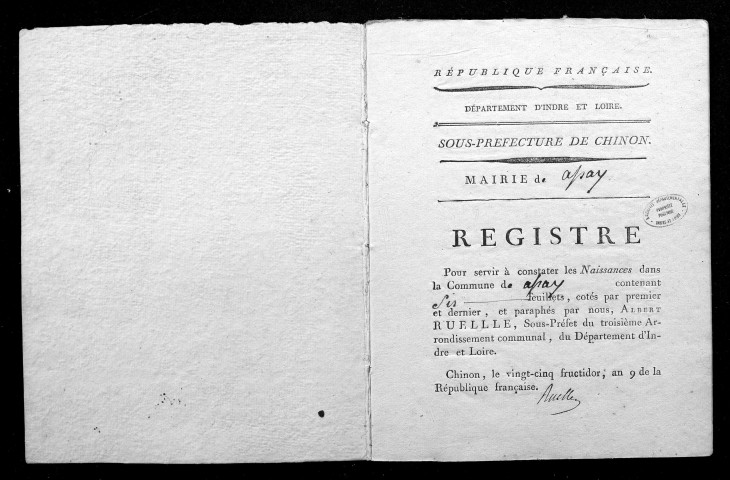 RÉPUBLIQUE FRANÇAISE.
DÉPARTEMENT D'INDRE ET LOIRE.
SOUS-PREFECTURE DE CHINON.
MAIRIE de assay
REGISTRE
Pour servir à constater les Naissances dans
la Commune de assay contenant
Six feuillets, cotés par premier
et dernier, et paraphés par nous, ALBERT
RUELLLE, Sous-Préfet du troisième Ar-
rondissement communal, du Département d'In-
dre et Loire.
Chinon, le vingt-cinq fructidor, an 9 de la
République française.
Ruelle